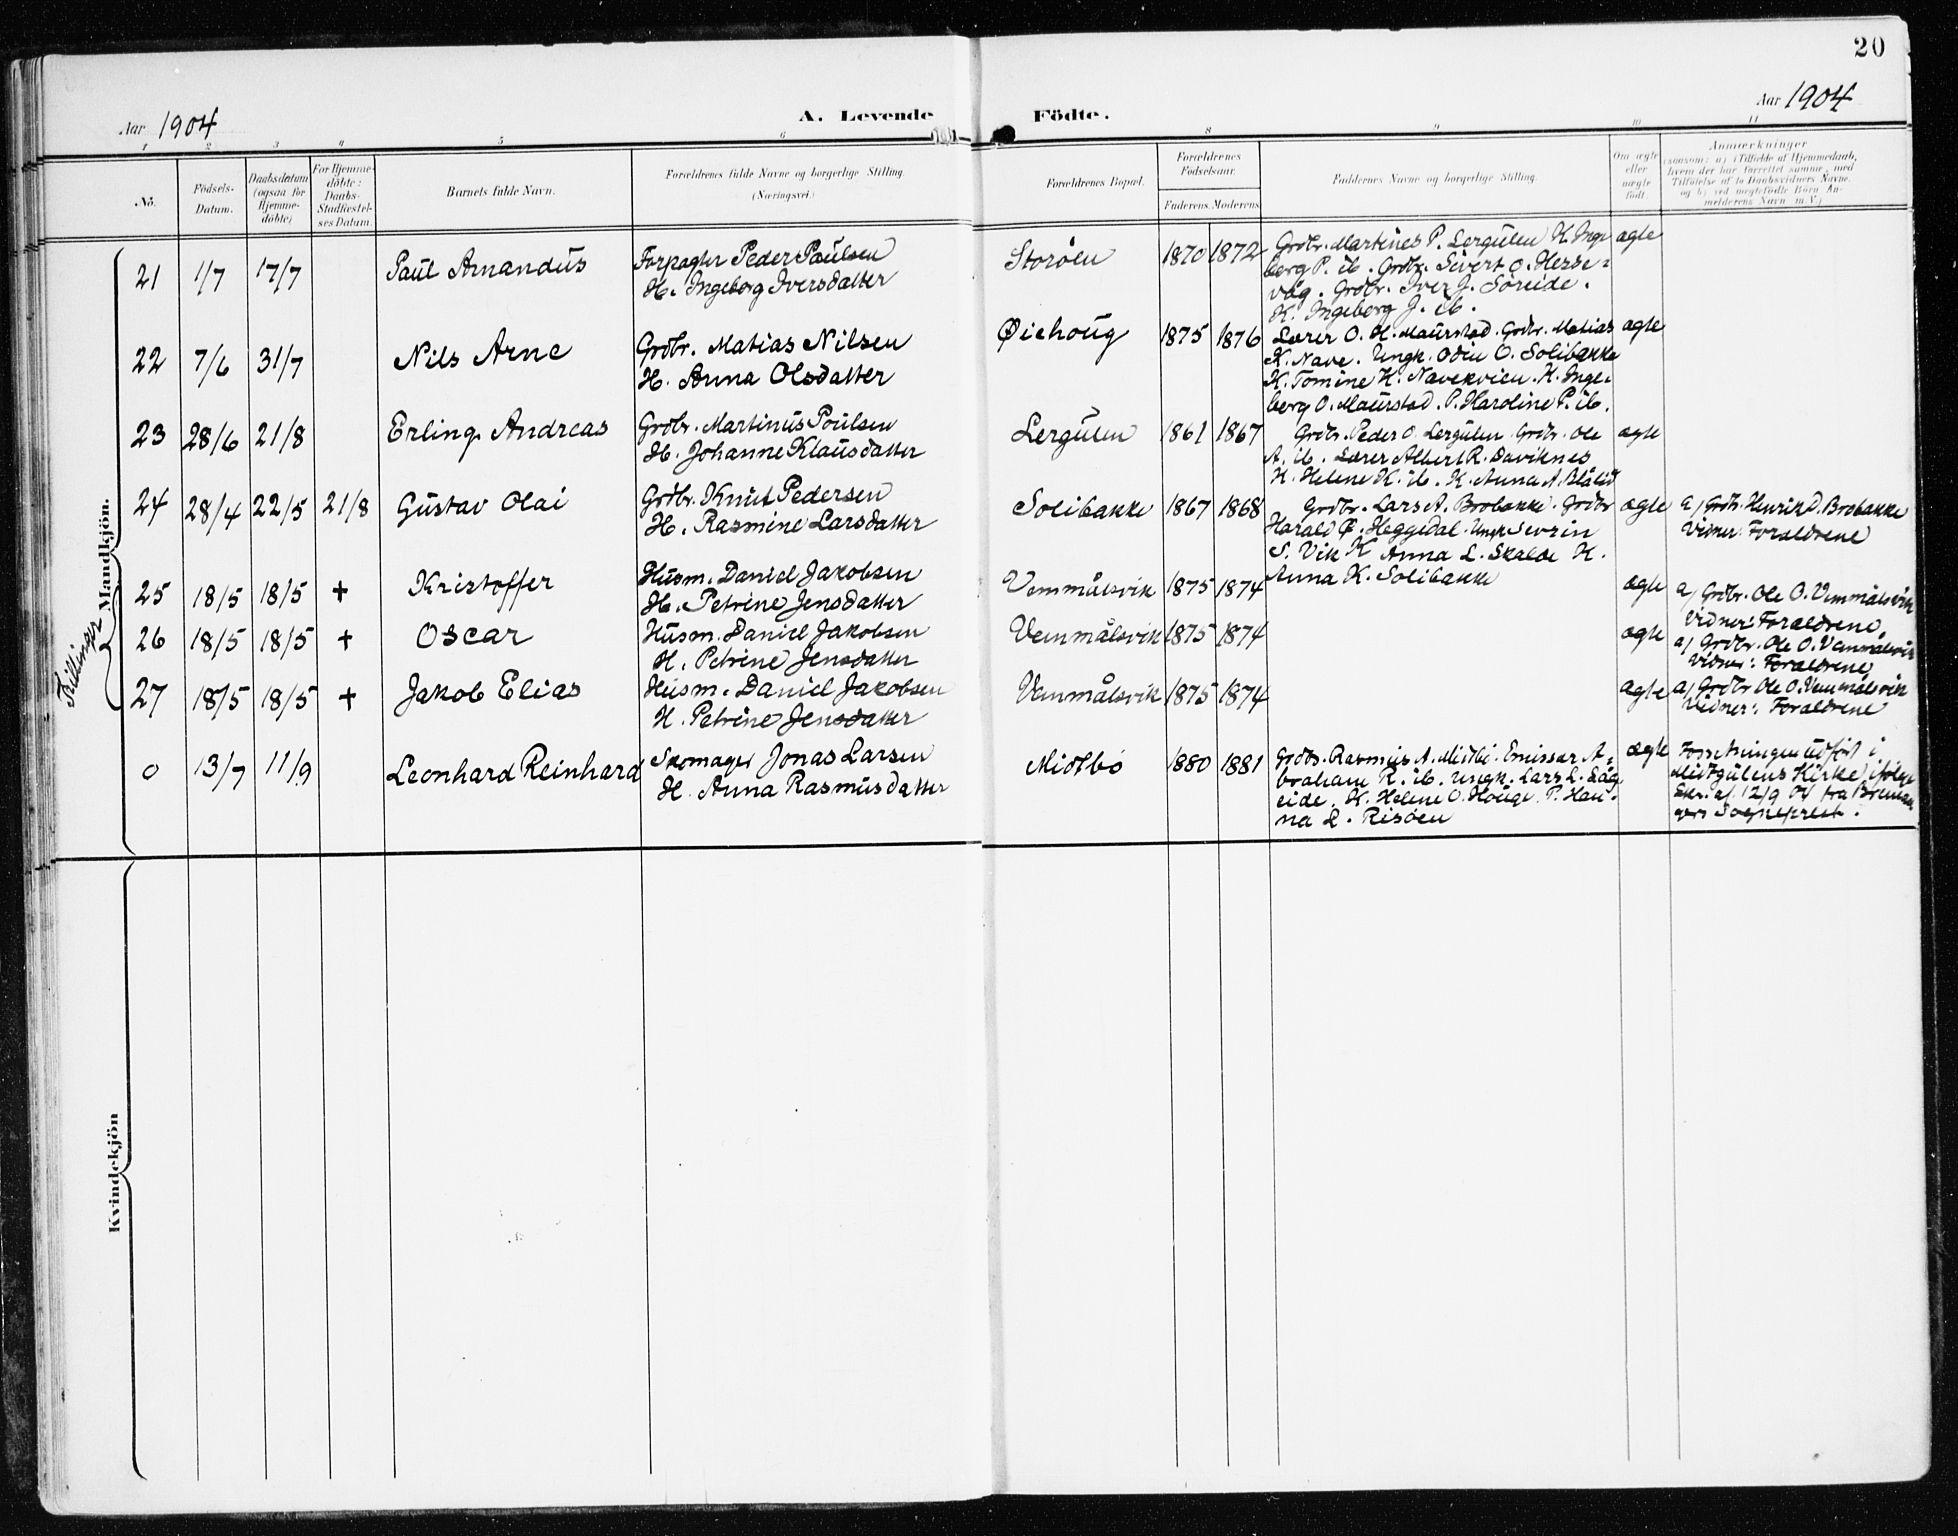 20
Aar 1904
A. Levende Födte.
Aar 1904
1 2 3 4 5 6 8 9 10 11
No.
Födsels-Datum.
Daabsdatum (ogsaa for Hjemmedöbte)
For Hjemmedöbte: Daabs-Stadfæstelses Datum
Barnets fulde Navn.
Forældrenes fulde Navne og borgerlige Stilling.
(Næringsvei.)
Forældrenes Bopæl.
Forældrenes Födselsaar.
Faderens. Moderens.
Faddernes Navne og borgerlige Stilling.
Om ægte eller uægte födt.
Anmærkninger
(saasom: a) i Tilfælde af Hjemmedaab,
hvem der har forrettet samme, med
Tilföielse af to Daabsvidners Navne.
og b) ved uægtefödte Börn An-
melderens Navn m. V.)
Mandkjön.
21 1/7 17/7 Paul Amandus
Forpagter Peder Paulsen
H. Ingeborg Iversdatter
Storöen 1870 1872
Grdbr. Martines P. Lergulen K. Inge
borg P. ib. Grdbr. Sivert O. Herde-
våg. Grdbr. Iver J. Söreide.
K. Ingeborg J. ib.
ægte
22 7/6 31/7 Nils Arne
Grdbr. Matias Nilsen
H. Anna Olsdatter
Øiehoug 1875 1876
Lærer O. H. Maurstad. Grdbr. Matias
K. Nave. Ungk. Odin O. Solibakke
K. Tomine K. Navekvien. K. Inge-
borg O. Maurstad. P. Haroline P. ib.
ægte
23 28/6 21/8 Erling Andreas
Grdbr. Martinus Poulsen
H. Johanne Klausdatter
Lergulen 1861 1867
Grdbr. Peder O. Lergulen Grdbr. Ole
A. ib. Lærer Albert R. Daviknes
K. Helene K. ib. K. Anna A. Blålid
ægte
24 28/4 22/5 21/8 Gustav Olai
Grdbr. Knut Pedersen
H. Rasmine Larsdatter
Solibakke 1867 1868
Grdbr. Lars A. Brobakke. Grdbr
Harald Ø. Heggedal. Ungk Sevrin
S. Vik K Anna L. Skalde K.
Anna K. Solibakke
ægte
a) Grdb. Henrik D. Brobakke
Vidner: Forældrene
Trillinger
25 18/5 18/5 + Kristoffer
Husm. Daniel Jakobsen
H. Petrine Jensdatter
Vemmålsvik 1875 1874
ægte
a) Grdbr. Ole O. Vemmålsvik
Vidner: Forældrene
26 18/5 18/5 + Oscar
Husm. Daniel Jakobsen
H. Petrine Jensdatter
Vemmålsvik 1875 1874
ægte
a) Grdbr. Ole O. Vemmålsvik
Vidner: Forældrene
27 18/5 18/5 + Jakob Elias
Husm. Daniel Jakobsen
H. Petrine Jensdatter
Vemmålsvik 1875 1874
ægte
a) Grdbr Ole O. Vemmålsvik
Vidner: Forældrene
0 13/7 11/9 Leonhard Reinhard
Skomager Jonas Larsen
H. Anna Rasmusdatter
Midtbö 1880 1881
Grdbr. Rasmus A. Midtbö. Emissær A-
braham R. ib. Ungk. Lars L. Låg
eide. K. Helene O. Houge. P. Han-
na L. Risöen
ægte
Forretningen udfört i
Midtgulens Kirke ifölge
Skr. af 12/9 04 fra Breman
gers Sogneprest.
Kvindekjön